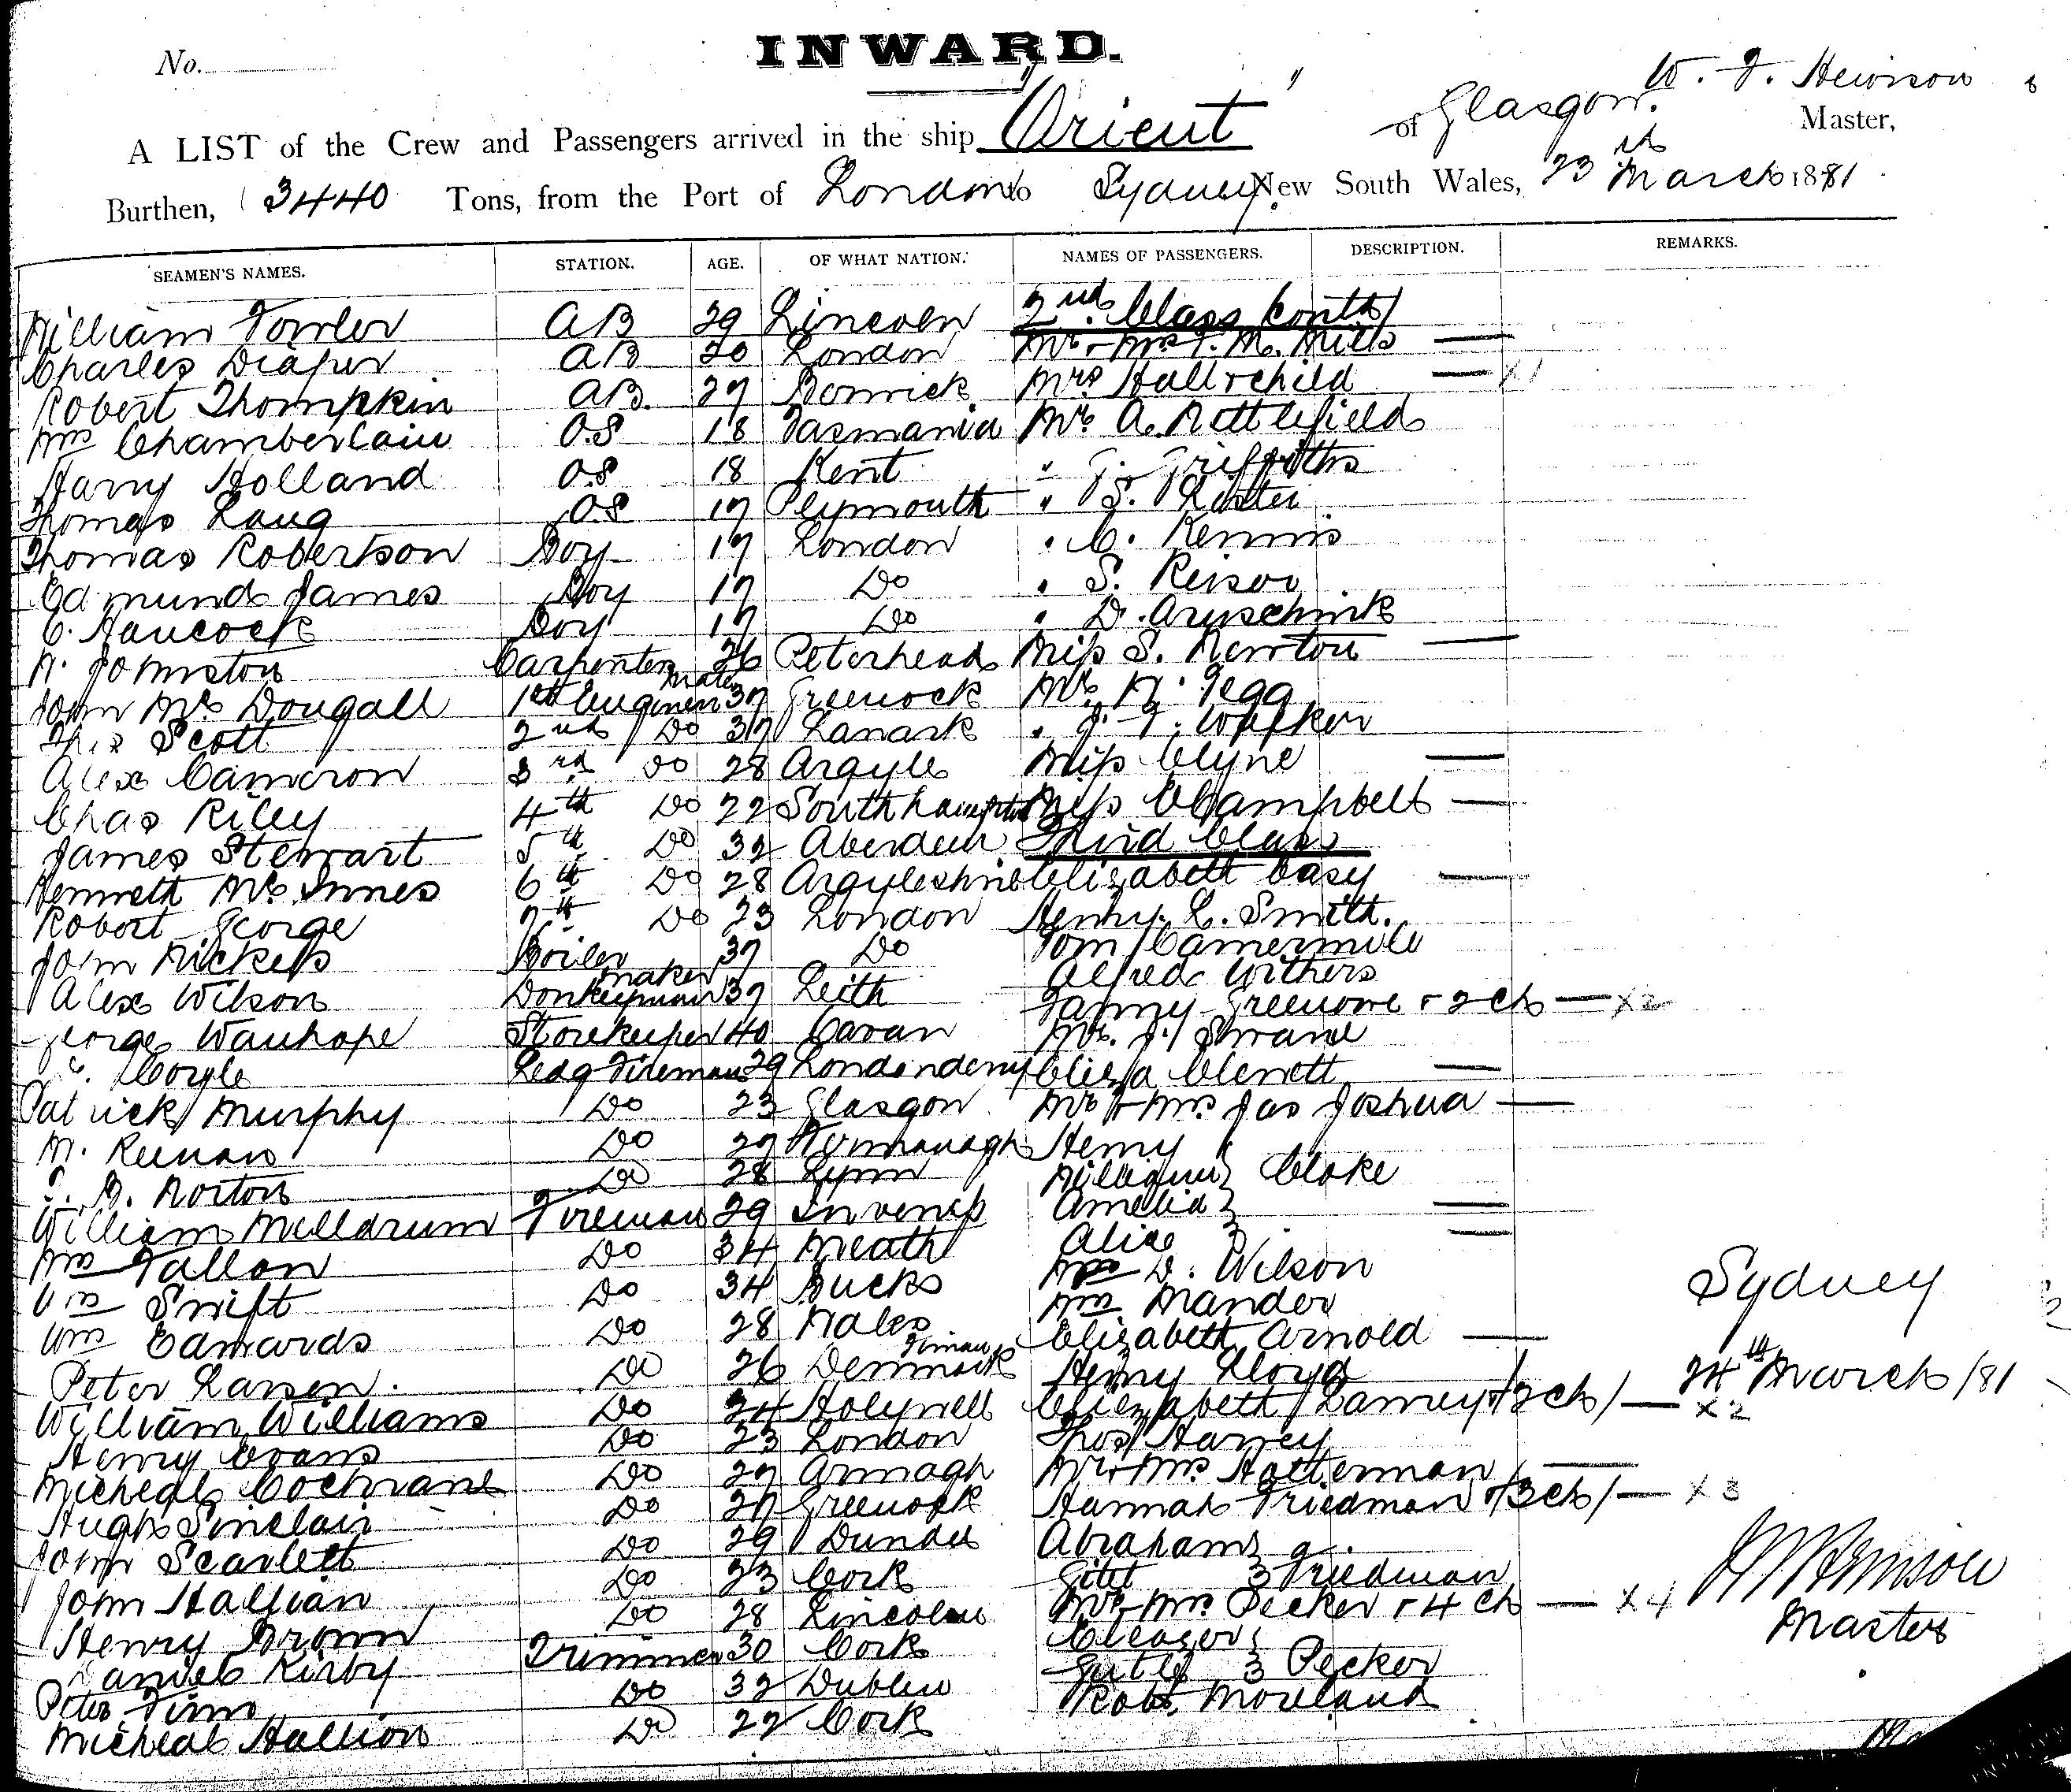 INWARD.
No.
W. F. Hewison
A LIST of the Crew and Passengers arrived in the ship "Orient" of Glasgow. Master,
Burthen, 3440 Tons, from the Port of London to Sydney. New South Wales, 23rd March 1881
SEAMEN'S NAMES. STATION. AGE. OF WHAT NATION. NAMES OF PASSENGERS. DESCRIPTION. REMARKS.
William Fowler AB 29 Lincoln 2nd Class Contd
Charles Draper AB 20 London Mr & Mrs T. M. Mills —
Robert Thompkin AB. 27 Berwick Mrs Hall & child — x1
Wm Chamberlain O.S 18 Tasmania Mr A. Nettlefield
Harry Holland O.S 18 Kent " G. Griffiths
Thomas Laug O.S 17 Plymouth " S.
Thomas Robertson Boy 17 London " C. Kennis
Edmund James Boy 17 Do " S. Reisor
C. Hancock Boy 17 Do " D.
W. Johnston Carpenters mate 26 Peterhead Miss S. Newton —
John McDougall 1st Engineer 37 Greenock Mr H. Tegg
Thos Scott 2nd Do 37 Lanark " J. T. Walker
Alex Cameron 3rd Do 28 Argyle Miss Clyne —
Chas Riley 4th Do 22 Southampton Miss Campbell —
James Stewart 5th Do 32 Aberdeen Third Class
Kenneth McInnes 6th Do 28 Argyleshire Elizabeth Casy —
Robert George 7th Do 23 London Henry L. Smith.
John Rickets Boiler maker 37 Do Tom
Alex Wilson Donkeyman 37 Leith Alfred Withers
George Wauhope Storekeeper 40 Cavan Fanny & 2 Ch — x2
Coyle Ledg Fireman 29 Londonderry Mr. J. Swane
Patrick Murphy Do 23 Glasgow Eliza Clenett —
M. Keenan Do 27 Fermanagh Mr & Mrs Jas Joshua —
B. Norton Do 28 Lynn Henry
William Melldrum Fireman 29 Inverness William Cloke
Wm Fallon Do 34 Meath Amelia —
Wm Swift Do 34 Bucks Alice —
Wm Edwards Do 28 Wales Wm D. Wilson
Peter Larsen. Do 26 Denmark Wm Mander
William Williams Do 24 Holywell Elizabeth Arnold —
Henry Evans Do 23 London Henry Lloyd
Micheal Cochrane Do 27 Armagh Elizabeth Lamey + 2 Ch — x2
Hugh Sinclair Do 27 Greenock Thos Harvey
John Scarlett Do 29 Dundee Mr & Mrs Hatterman —
John Hallian Do 23 Cork Hannah Friedman + 3 Ch — x3
Henry Brown Do 28 Lincoln Abraham
Daniel Kirby Trimmer 30 Cork Gitel Friedman
Peter Finn Do 32 Dublin Mr & Mrs Pecker & 4 Ch — x4
Micheal Hallion Do 22 Cork Eleazer
Gutel Pecker
Robt Moreland
Sydney
24th March /81
Hewison
Master